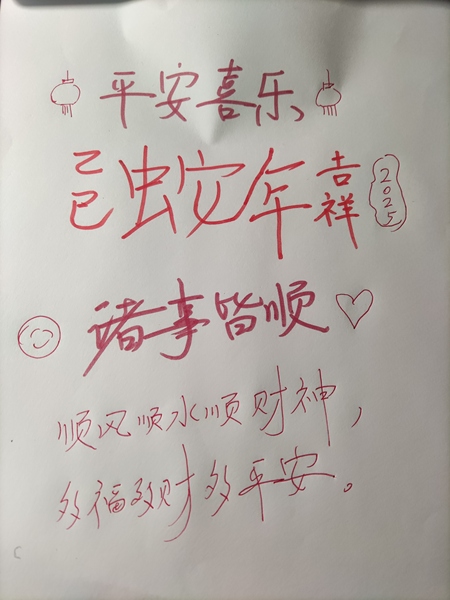 平安喜乐
乙巳蛇年吉祥 2025
诸事皆顺
顺风顺水顺财神，
多福多财多平安。